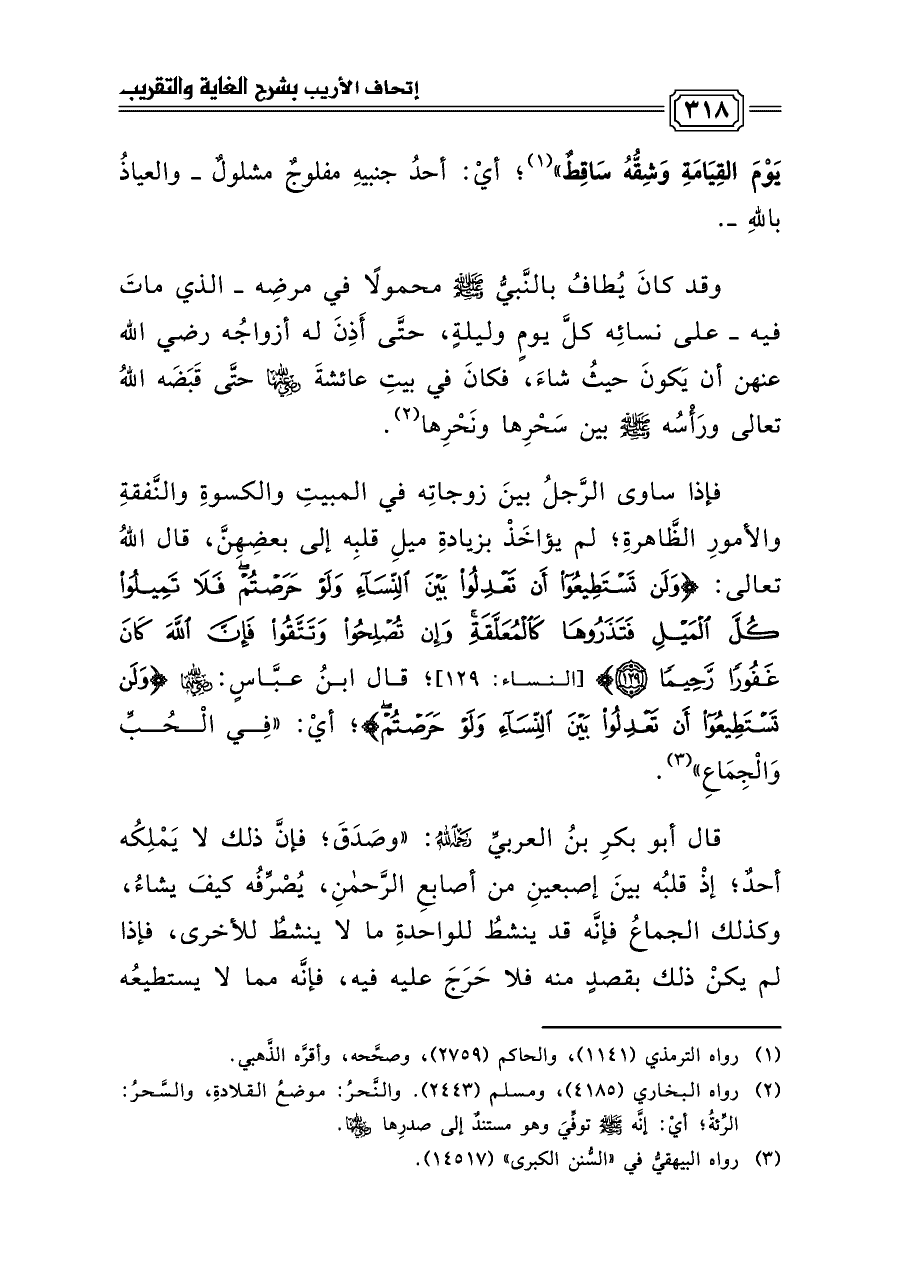 إتحاف الأريب بشرح الغاية والتقريب
٣١٨
يَوْمَ القِيَامَةِ وَشِقُّهُ سَاقِطٌ»(١)؛ أيْ: أحدُ جنبيهِ مفلوجٌ مشلولٌ ـ والعياذُ
باللهِ ـ.
وقد كانَ يُطافُ بالنَّبيُّ ﷺ محمولًا في مرضِه ـ الذي ماتَ
فيه ـ على نسائِه كلَّ يومٍ وليلةٍ، حتَّى أَذِنَ له أزواجُه رضي الله
عنهن أن يَكونَ حيثُ شاءَ، فكانَ في بيتِ عائشةَ رضي الله عنها حتَّى قَبَضَه اللهُ
تعالى ورَأْسُه ﷺ بين سَحْرِها ونَحْرِها(٢).
فإذا ساوى الرَّجلُ بينَ زوجاتِه في المبيتِ والكسوةِ والنَّفقةِ
والأمورِ الظَّاهرةِ؛ لم يؤاخَذْ بزيادةِ ميلِ قلبِه إلى بعضِهِنَّ، قال اللهُ
تعالى: ﴿وَلَن تَسْتَطِيعُوٓاْ أَن تَعْدِلُواْ بَيْنَ ٱلنِّسَآءِ وَلَوْ حَرَصْتُمْۖ فَلَا تَمِيلُواْ
كُلَّ ٱلْمَيْلِ فَتَذَرُوهَا كَٱلْمُعَلَّقَةِۚ وَإِن تُصْلِحُواْ وَتَتَّقُواْ فَإِنَّ ٱللَّهَ كَانَ
غَفُورًا رَّحِيمًا ١٢٩﴾ [النساء: ١٢٩]؛ قال ابنُ عبَّاسٍ: رضي الله عنهما ﴿وَلَن
تَسْتَطِيعُوٓاْ أَن تَعْدِلُواْ بَيْنَ ٱلنِّسَآءِ وَلَوْ حَرَصْتُمْۖ﴾؛ أيْ: «فِي الْحُبِّ
وَالْجِمَاعِ»(٣).
قال أبو بكرِ بنُ العربيِّ رحمه الله: «وصَدَقَ؛ فإنَّ ذلك لا يَمْلِكُه
أحدٌ؛ إذْ قلبُه بينَ إصبعينِ من أصابعِ الرَّحمٰنِ، يُصْرِّفُه كيفَ يشاءُ،
وكذلك الجماعُ فإنَّه قد ينشطُ للواحدةِ ما لا ينشطُ للأخرى، فإذا
لم يكنْ ذلك بقصدٍ منه فلا حَرَجَ عليه فيه، فإنَّه مما لا يستطيعُه
(١) رواه الترمذي (١١٤١)، والحاكم (٢٧٥٩)، وصحَّحه، وأقرَّه الذَّهبي.
(٢) رواه البخاري (٤١٨٥)، ومسلم (٢٤٤٣). والنَّحرُ: موضعُ القلادةِ، والسَّحرُ:
الرِّئةُ؛ أيْ: إنَّه ﷺ توفِّيَ وهو مستندٌ إلى صدرِها رضي الله عنها.
(٣) رواه البيهقيُّ في «السُّنن الكبرى» (١٤٥١٧).